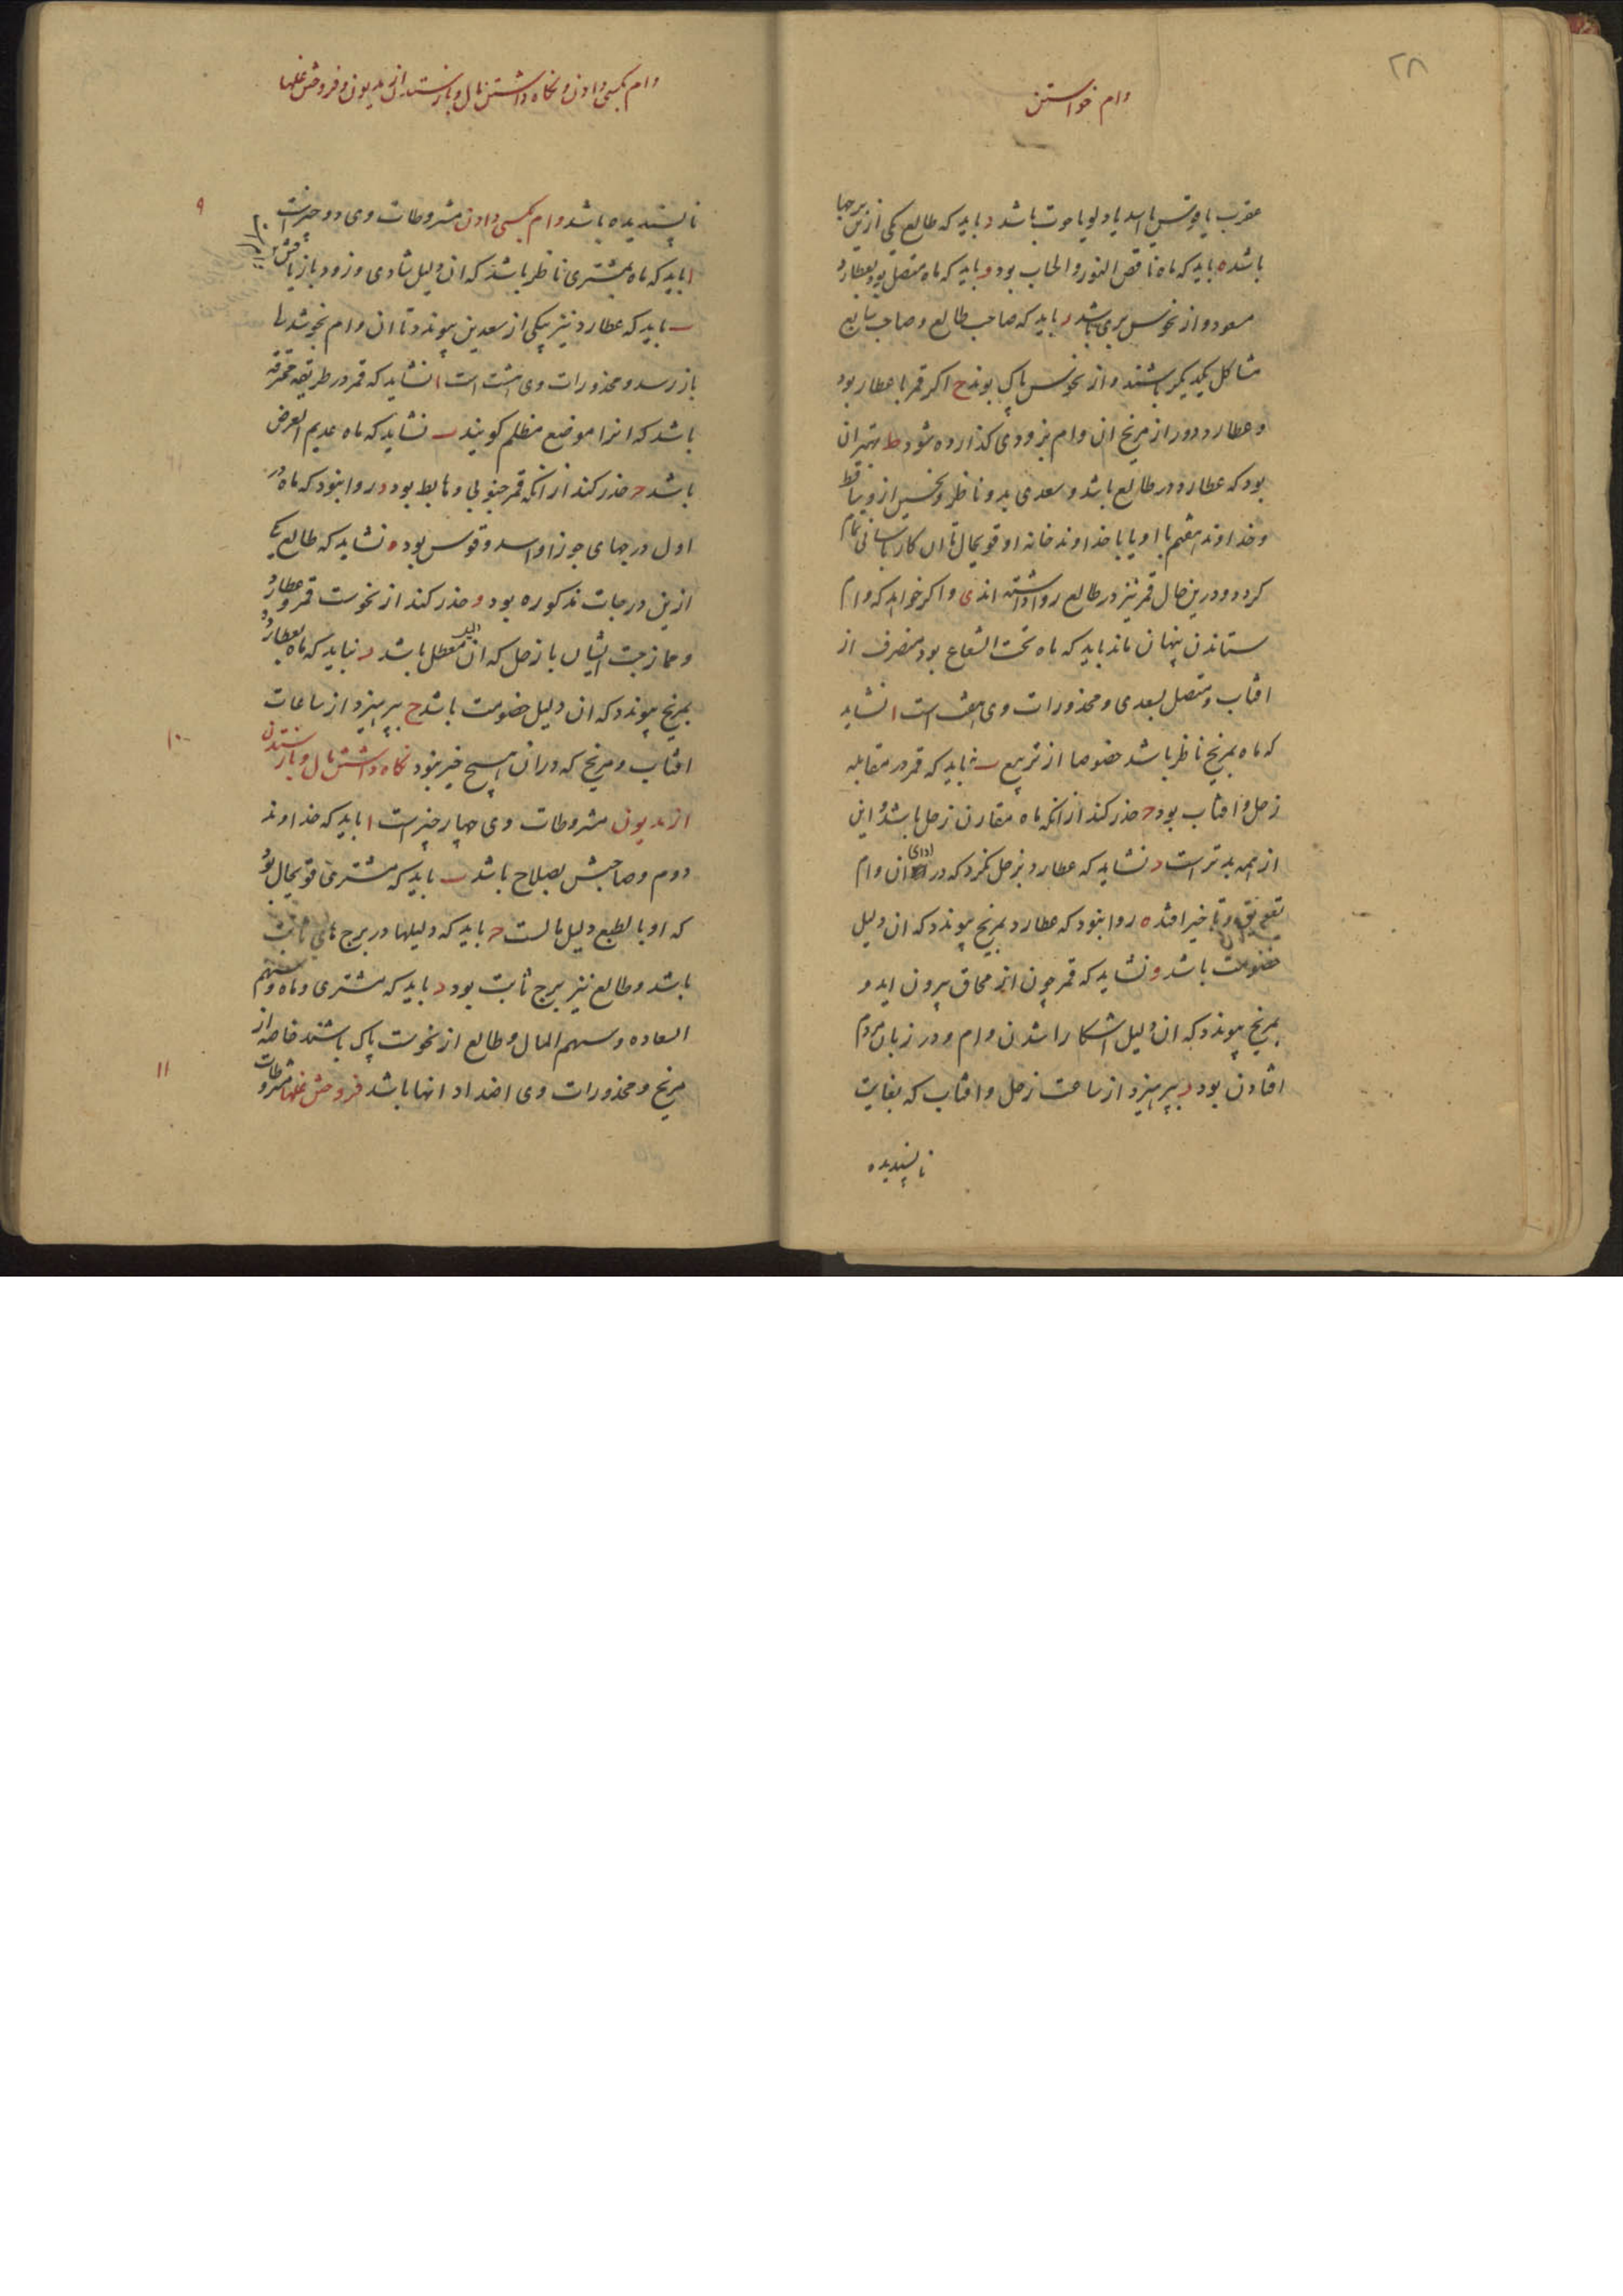 ۲۸
وام خواستن
عقرب یا قوس یا اسد یا دلو یا حوت باشد د باید که طالع یکی ازین برجها
باشد ه باید که ماه ناقص النور والحساب بود و باید که ماه متصل بود بعطارد
مسعود و از نحوس بری باشد ر باید که صاحب طالع و صاحب سابع
مشاکل یکدیکر باشند و از نحوس پاک بوند ح اکر قمر با عطارد بود
و عطارد دور از مریخ ان وام بزودی کذارده شود ط بهتر ان
بود که عطارد در طالع باشد و سعدی بدو ناظر و نحس از وی ساقط
و خداوند هفتم با او یا با خداوند خانه او قویحال تا ان کار باسانی تمام
کردد و درین حال قمر نیز در طالع روا داشته اند ی و اکر خواهد که وام
ستاندن پنهان ماند باید که ماه تحت الشعاع بود منصرف از
افتاب و متصل بسعدی و محذورات وی هفت است ا نشاید
که ماه بمریخ ناظر باشد خصوصا از تربیع ب نباید که قمر در مقابله
زحل و افتاب بود ح حذر کند از انکه ماه مقارن زحل باشد و این
از همه بدترست د نشاید که عطارد بزحل نکرد که در ادای ان وام
تعویق و تاخیر افتد ه روا نبود که عطارد بمریخ پیوندد که ان دلیل
خصومت باشد و نشاید که قمر چون از محاق بیرون اید و
بمریخ پیوندد که ان دلیل اشکارا شدن وام و در زبان مردم
افتادن بود ر بپرهیزد از ساعت زحل و افتاب که بغایت
ناپسندیده
وام بکسی دادن و نکاه داشتن مال و باز ستدن از مدیون و فروختن غلها
ناپسندیده باشد وام بکسی دادن مشروطات وی دو چیز است
۹
ا باید که ماه بمشتری ناظر باشد که ان دلیل شادی و زود باز یافتن
ب باید که عطارد نیز بیکی از سعدین پیوندد تا ان وام بخوشدلی
باز رسد و محذورات وی هشت است ا نشاید که قمر در طریقه محترقه
باشد که انرا موضع مظلم کویند ب نشاید که ماه عدیم العرض
باشد ح حذر کند از انکه قمر جنوبی و هابط بود د روا نبود که ماه در
اول درجهای جوزا و اسد و قوس بود ه نشاید که طالع یکی
ازین درجات مذکوره بود و حذر کند از نحوست قمر و عطارد
و ممازجت ایشان با زحل که ان دلیل معطل باشد ر نباید که ماه بعطارد و
بمریخ پیوندد که ان دلیل خصومت باشد ح بپرهیزد از ساعات
افتاب و مریخ که در ان هیچ خیر نبود نکاه داشتن مال و باز ستدن
۱۰
از مدیون مشروطات وی چهار چیز است ا باید که خداوند
دوم و صاحبش بصلاح باشد ب باید که مشتری قویحال بود
که او بالطبع دلیل مالست ح باید که دلیلها در برج های ثابت
باشد و طالع نیز برج ثابت بود د باید که مشتری و ماه و سهم
السعاده و سهم المال و طالع از نحوست پاک باشند خاصه از
مریخ و محذورات وی اضداد انها باشد فروختن غلها مشروطات
۱۱